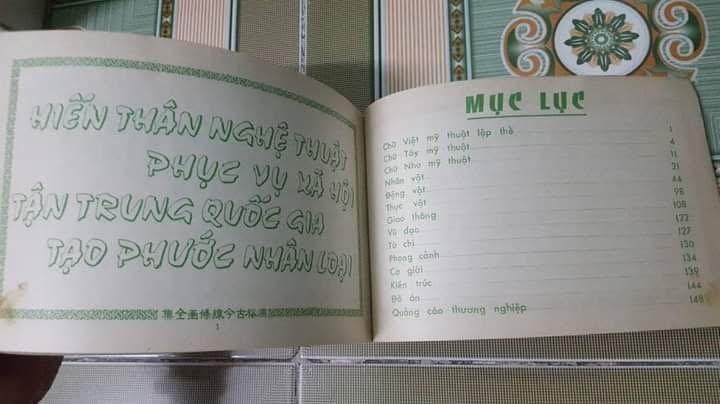 HIẾN THÂN NGHỆ THUẬT
PHỤC VỤ XÃ HỘI
TẬN TRUNG QUỐC GIA
TẠO PHƯỚC NHÂN LOẠI
集全画條線今古
1
MỤC LỤC
Chữ Việt mỹ thuật lập thể 1
Chữ Tây mỹ thuật 4
Chữ Nho mỹ thuật 11
Nhân vật 21
Động vật 44
Thực vật 98
Giao thông 108
Vũ đạo 122
Tứ chi 127
Phong cảnh 130
Cơ giới 134
Kiến trúc 139
Đồ án 144
Quảng cáo thương nghiệp 148